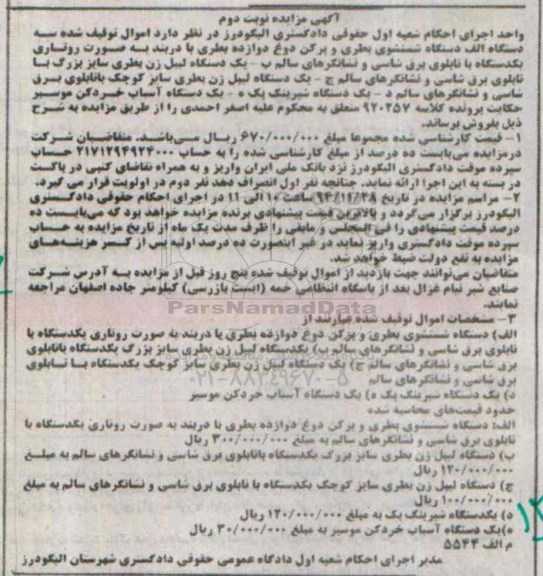 آگهی مزایده نوبت دوم
واحد اجرای احکام شعبه اول حقوقی دادگستری الیگودرز در نظر دارد اموال توقیف شده سه
دستگاه الف دستگاه شستشوی بطری و پرکن دوغ دوازده بطری با دربند به صورت روتاری
یکدستگاه با تابلوی برق شاسی و نشانگرهای سالم ب - یک دستگاه لیبل زن بطری سایز بزرگ با
تابلوی برق شاسی و نشانگرهای سالم ج - یک دستگاه لیبل زن بطری سایز کوچک باتابلوی برق
شاسی و نشانگرهای سالم د - یک دستگاه شیرینگ پک ه - یک دستگاه آسیاب خردکن موسیر
حکایت پرونده کلاسه ۹۲۰۲۵۷ متعلق به محکوم علیه اصغر احمدی را از طریق مزایده به شرح
ذیل بفروش برساند.
۱- قیمت کارشناسی شده مجموعا مبلغ ۶۷۰/۰۰۰/۰۰۰ ریال می‌باشد. متقاضیان شرکت
درمزایده می‌بایست ده درصد از مبلغ کارشناسی شده را به حساب ۲۱۷۱۲۹۴۹۲۴۰۰۰ حساب
سپرده موقت دادگستری الیگودرز نزد بانک ملی ایران واریز و به همراه تقاضای کتبی در پاکت
در بسته به این اجرا ارائه نماید. چنانچه نفر اول انصراف دهد نفر دوم در اولویت قرار می گیرد.
۲- مراسم مزایده در تاریخ ۹۳/۱۱/۲۸ ساعت ۱۰ الی ۱۱ در اجرای احکام حقوقی دادگستری
الیگودرز برگزار می‌گردد و بالاترین قیمت پیشنهادی برنده مزایده خواهد بود که می‌بایست ده
درصد قیمت پیشنهادی را فی المجلس و مابقی را ظرف مدت یک ماه از تاریخ مزایده به حساب
سپرده موقت دادگستری واریز نماید در غیر اینصورت ده درصد اولیه پس از کسر هزینه‌های
مزایده به نفع دولت ضبط خواهد شد.
متقاضیان می‌توانند جهت بازدید از اموال توقیف شده پنج روز قبل از مزایده به آدرس شرکت
صنایع شیر نیام غزال بعد از پاسگاه انتظامی خمه (ایست بازرسی) کیلومتر جاده اصفهان مراجعه
نمایند.
ParsNamadData
۳- مشخصات اموال توقیف شده عبارتند از
الف) دستگاه شستشوی بطری و پرکن دوغ دوازده بطری با دربند به صورت روتاری یکدستگاه با
تابلوی برق شاسی و نشانگرهای سالم ب) یکدستگاه لیبل زن بطری سایز بزرگ یکدستگاه باتابلوی
برق شاسی و نشانگرهای سالم ج) یک دستگاه لیبل زن بطری سایز کوچک یکدستگاه با تابلوی
برق شاسی و نشانگرهای سالم
۰۲۱-۸۸۳۴۹۶۷۰-۵
د) یک دستگاه شیرینگ پک ه) یک دستگاه آسیاب خردکن موسیر
حدود قیمت‌های محاسبه شده
الف: دستگاه شستشوی بطری و پرکن دوغ دوازده بطری با دربند به صورت روتاری یکدستگاه با
تابلوی برق شاسی و نشانگرهای سالم به مبلغ ۳۰۰/۰۰۰/۰۰۰ ریال
ب) دستگاه لیبل زن بطری سایز بزرگ یکدستگاه باتابلوی برق شاسی و نشانگرهای سالم به مبلغ
۱۲۰/۰۰۰/۰۰۰ ریال
ج) دستگاه لیبل زن بطری سایز کوچک یکدستگاه با تابلوی برق شاسی و نشانگرهای سالم به مبلغ
۱۰۰/۰۰۰/۰۰۰ ریال
د) یکدستگاه شیرینگ پک به مبلغ ۱۲۰/۰۰۰/۰۰۰ ریال
ه)یک دستگاه آسیاب خردکن موسیر به مبلغ ۳۰/۰۰۰/۰۰۰ ریال
م الف ۵۵۴۴
مدیر اجرای احکام شعبه اول دادگاه عمومی حقوقی دادگستری شهرستان الیگودرز